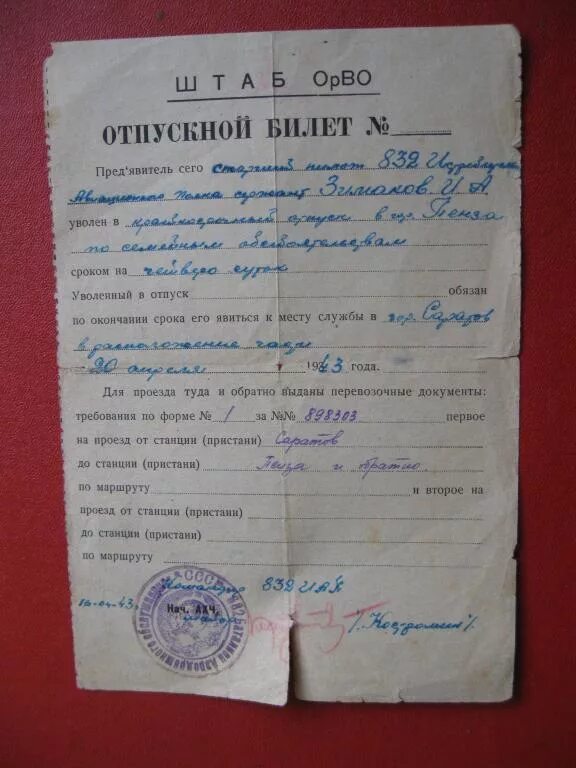 ШТАБ ОрВО
ОТПУСКНОЙ БИЛЕТ №
Пред'явитель сего старший пилот 832 Истребительн
Авиационного полка сержант Зимаков И А
уволен в краткосрочный отпуск в гор. Пенза
по семейным обстоятельствам
сроком на четверо суток
Уволенный в отпуск обязан
по окончании срока его явиться к месту службы в гор. Саратов
в расположение части
20 апреля 1943 года.
Для проезда туда и обратно выданы перевозочные документы:
требования по форме № 1 за №№ 898303 первое
на проезд от станции (пристани) Саратов
до станции (пристани) Пенза и обратно
по маршруту и второе на
проезд от станции (пристани)
до станции (пристани)
по маршруту
Командир 832 ИАП
16-04-43. Нач. АХЧ
/Костромин/.
СССР